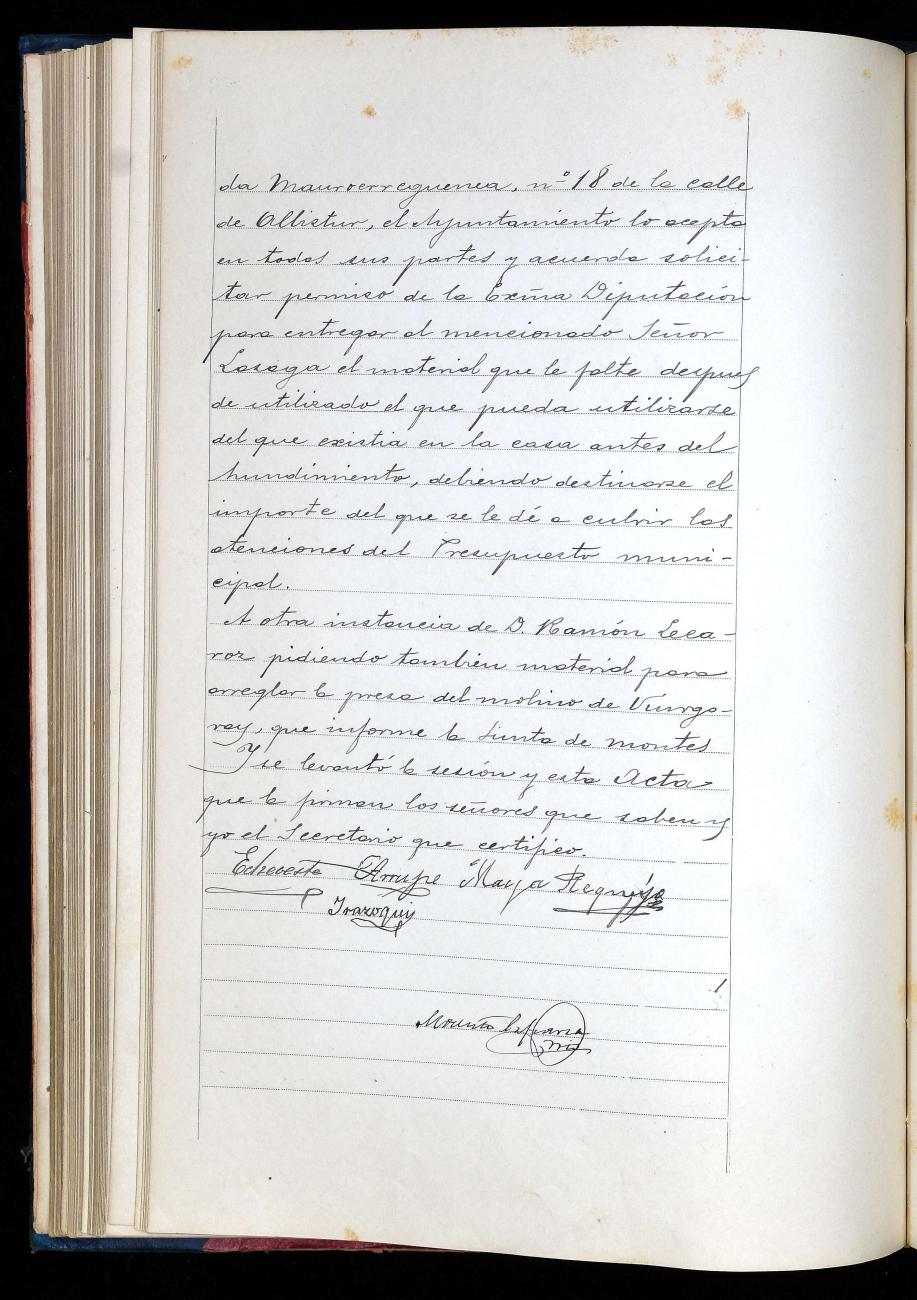 da Mauroerreguenea, nº 18 de la calle
de Altistur, el Ayuntamiento lo acepta
en todas sus partes y acuerda solici-
tar permiso de la Excma Diputación
para entregar al mencionado Señor
Lasaga el material que le falte despues
de utilizado el que pueda utilizarse
del que existia en la casa antes del
hundimiento, debiendo destinarse el
importe del que se le dé a cubrir las
atenciones del Presupuesto muni-
cipal.
A otra instancia de D. Ramón Leca-
roz pidiendo tambien material para
arreglar la presa del molino de
que informe la Junta de montes
Y se levantó la sesión y esta Acta
que la firman los señores que saben y
yo el Secretario que certifico.
Echeveste Arrupe Maya
Irazoqui